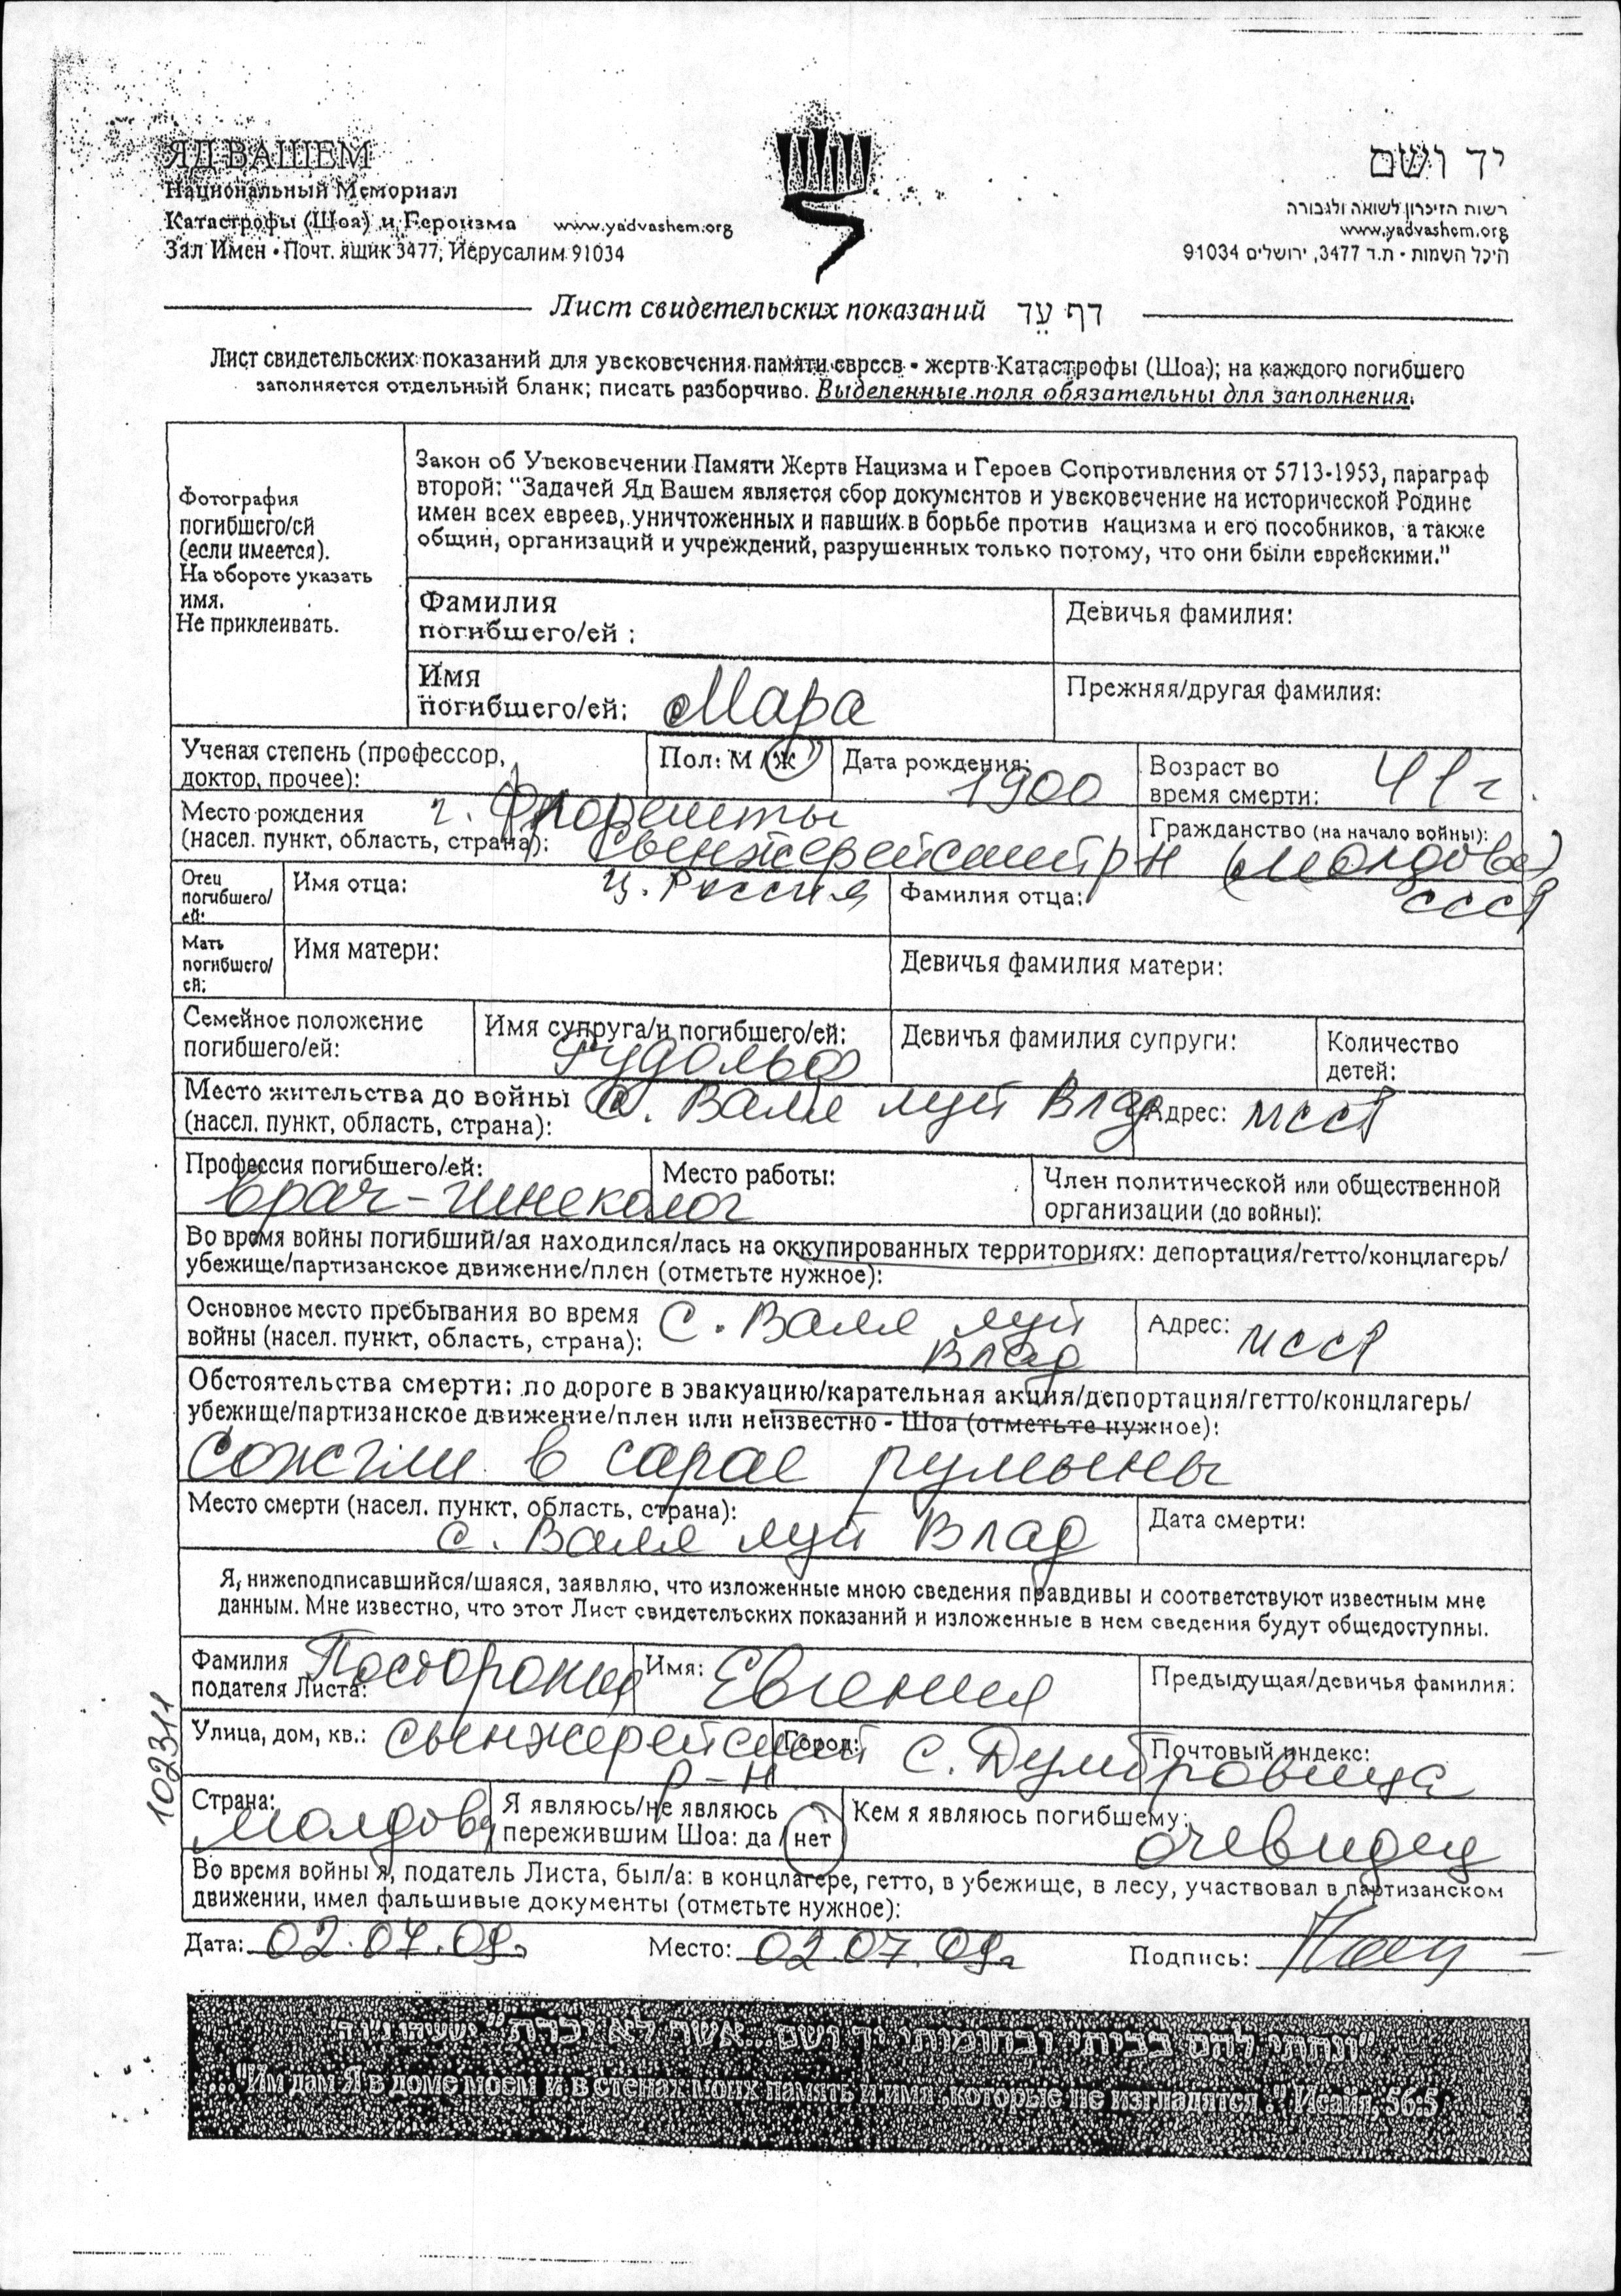 ЯД ВАШЕМ
Национальный Мемориал
Катастрофы (Шоа) и Героизма www.yadvashem.org
Зал Имен • Почт. ящик 3477, Иерусалим 91034
יד ושם
רשות הזיכרון לשואה ולגבורה
www.yadvashem.org
היכל השמות • ת.ד 3477, ירושלים 91034
Лист свидетельских показаний דף עֵד
Лист свидетельских показаний для увековечения памяти евреев - жертв Катастрофы (Шоа); на каждого погибшего
заполняется отдельный бланк; писать разборчиво. Выделенные поля обязательны для заполнения.
Фотография
погибшего/ей
(если имеется).
На обороте указать
имя.
Не приклеивать.
Закон об Увековечении Памяти Жертв Нацизма и Героев Сопротивления от 5713-1953, параграф
второй: "Задачей Яд Вашем является сбор документов и увековечение на исторической Родине
имен всех евреев, уничтоженных и павших в борьбе против нацизма и его пособников, а также
общин, организаций и учреждений, разрушенных только потому, что они были еврейскими."
Фамилия
погибшего/ей :
Девичья фамилия:
Имя
погибшего/ей: Мара
Прежняя/другая фамилия:
Ученая степень (профессор,
доктор, прочее):
Пол: М / Ж
Дата рождения: 1900
Возраст во
время смерти: 41 г
Место рождения г. Флорешты
(насел. пункт, область, страна): Сынжерейский р-н (Молдова)
Гражданство (на начало войны):
СССР
Отец
погибшего/
ей:
Имя отца: ц. Россия
Фамилия отца:
Мать
погибшего/
ей:
Имя матери:
Девичья фамилия матери:
Семейное положение
погибшего/ей:
Имя супруга/и погибшего/ей:
Рудольф
Девичья фамилия супруги:
Количество
детей:
Место жительства до войны с. Валя луй Влад
(насел. пункт, область, страна):
Адрес: МССР
Профессия погибшего/ей:
врач-гинеколог
Место работы:
Член политической или общественной
организации (до войны):
Во время войны погибший/ая находился/лась на оккупированных территориях: депортация/гетто/концлагерь/
убежище/партизанское движение/плен (отметьте нужное):
Основное место пребывания во время
войны (насел. пункт, область, страна): с. Валя луй
Влад
Адрес: МССР
Обстоятельства смерти: по дороге в эвакуацию/карательная акция/депортация/гетто/концлагерь/
убежище/партизанское движение/плен или неизвестно - Шоа (отметьте нужное):
Сожгли в сарае румыны
Место смерти (насел. пункт, область, страна):
с. Валя луй Влад
Дата смерти:
Я, нижеподписавшийся/шаяся, заявляю, что изложенные мною сведения правдивы и соответствуют известным мне
данным. Мне известно, что этот Лист свидетельских показаний и изложенные в нем сведения будут общедоступны.
Фамилия
подателя Листа: Посторонка
Имя: Евгения
Предыдущая/девичья фамилия:
Улица, дом, кв.: Сынжерейский
р-н
Город: с. Думбровица
Почтовый индекс:
102311
Страна:
Молдова
Я являюсь/не являюсь
пережившим Шоа: да / нет
Кем я являюсь погибшему:
очевидец
Во время войны я, податель Листа, был/а: в концлагере, гетто, в убежище, в лесу, участвовал в партизанском
движении, имел фальшивые документы (отметьте нужное):
Дата: 02.07.09г
Место: 02.07.09г
Подпись:
"ונתתי להם בביתי ובחומותי יד ושם...אשר לא יכרת" ישעיהו נ"ו ה'
..."Им дам Я в доме моем и в стенах моих память и имя, которые не изгладятся." Исайя, 56:5